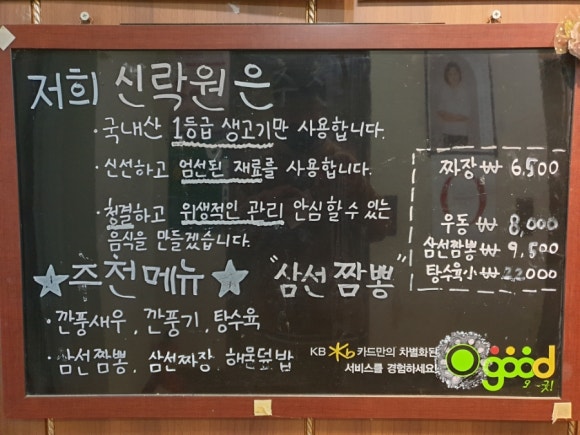 저희 신락원은
· 국내산 1등급 생고기만 사용합니다.
· 신선하고 엄선된 재료를 사용합니다.
· 청결하고 위생적인 관리 안심할 수 있는
음식을 만들겠습니다.
짜장 ₩ 6,500
우동 ₩ 8,000
삼선짬뽕 ₩ 9,500
탕수육小 ₩ 22,000
★추천메뉴★ "삼선짬뽕"
· 깐풍새우, 깐풍기, 탕수육
· 삼선짬뽕, 삼선짜장 해물덮밥
KB 카드만의 차별화된
서비스를 경험하세요!
good